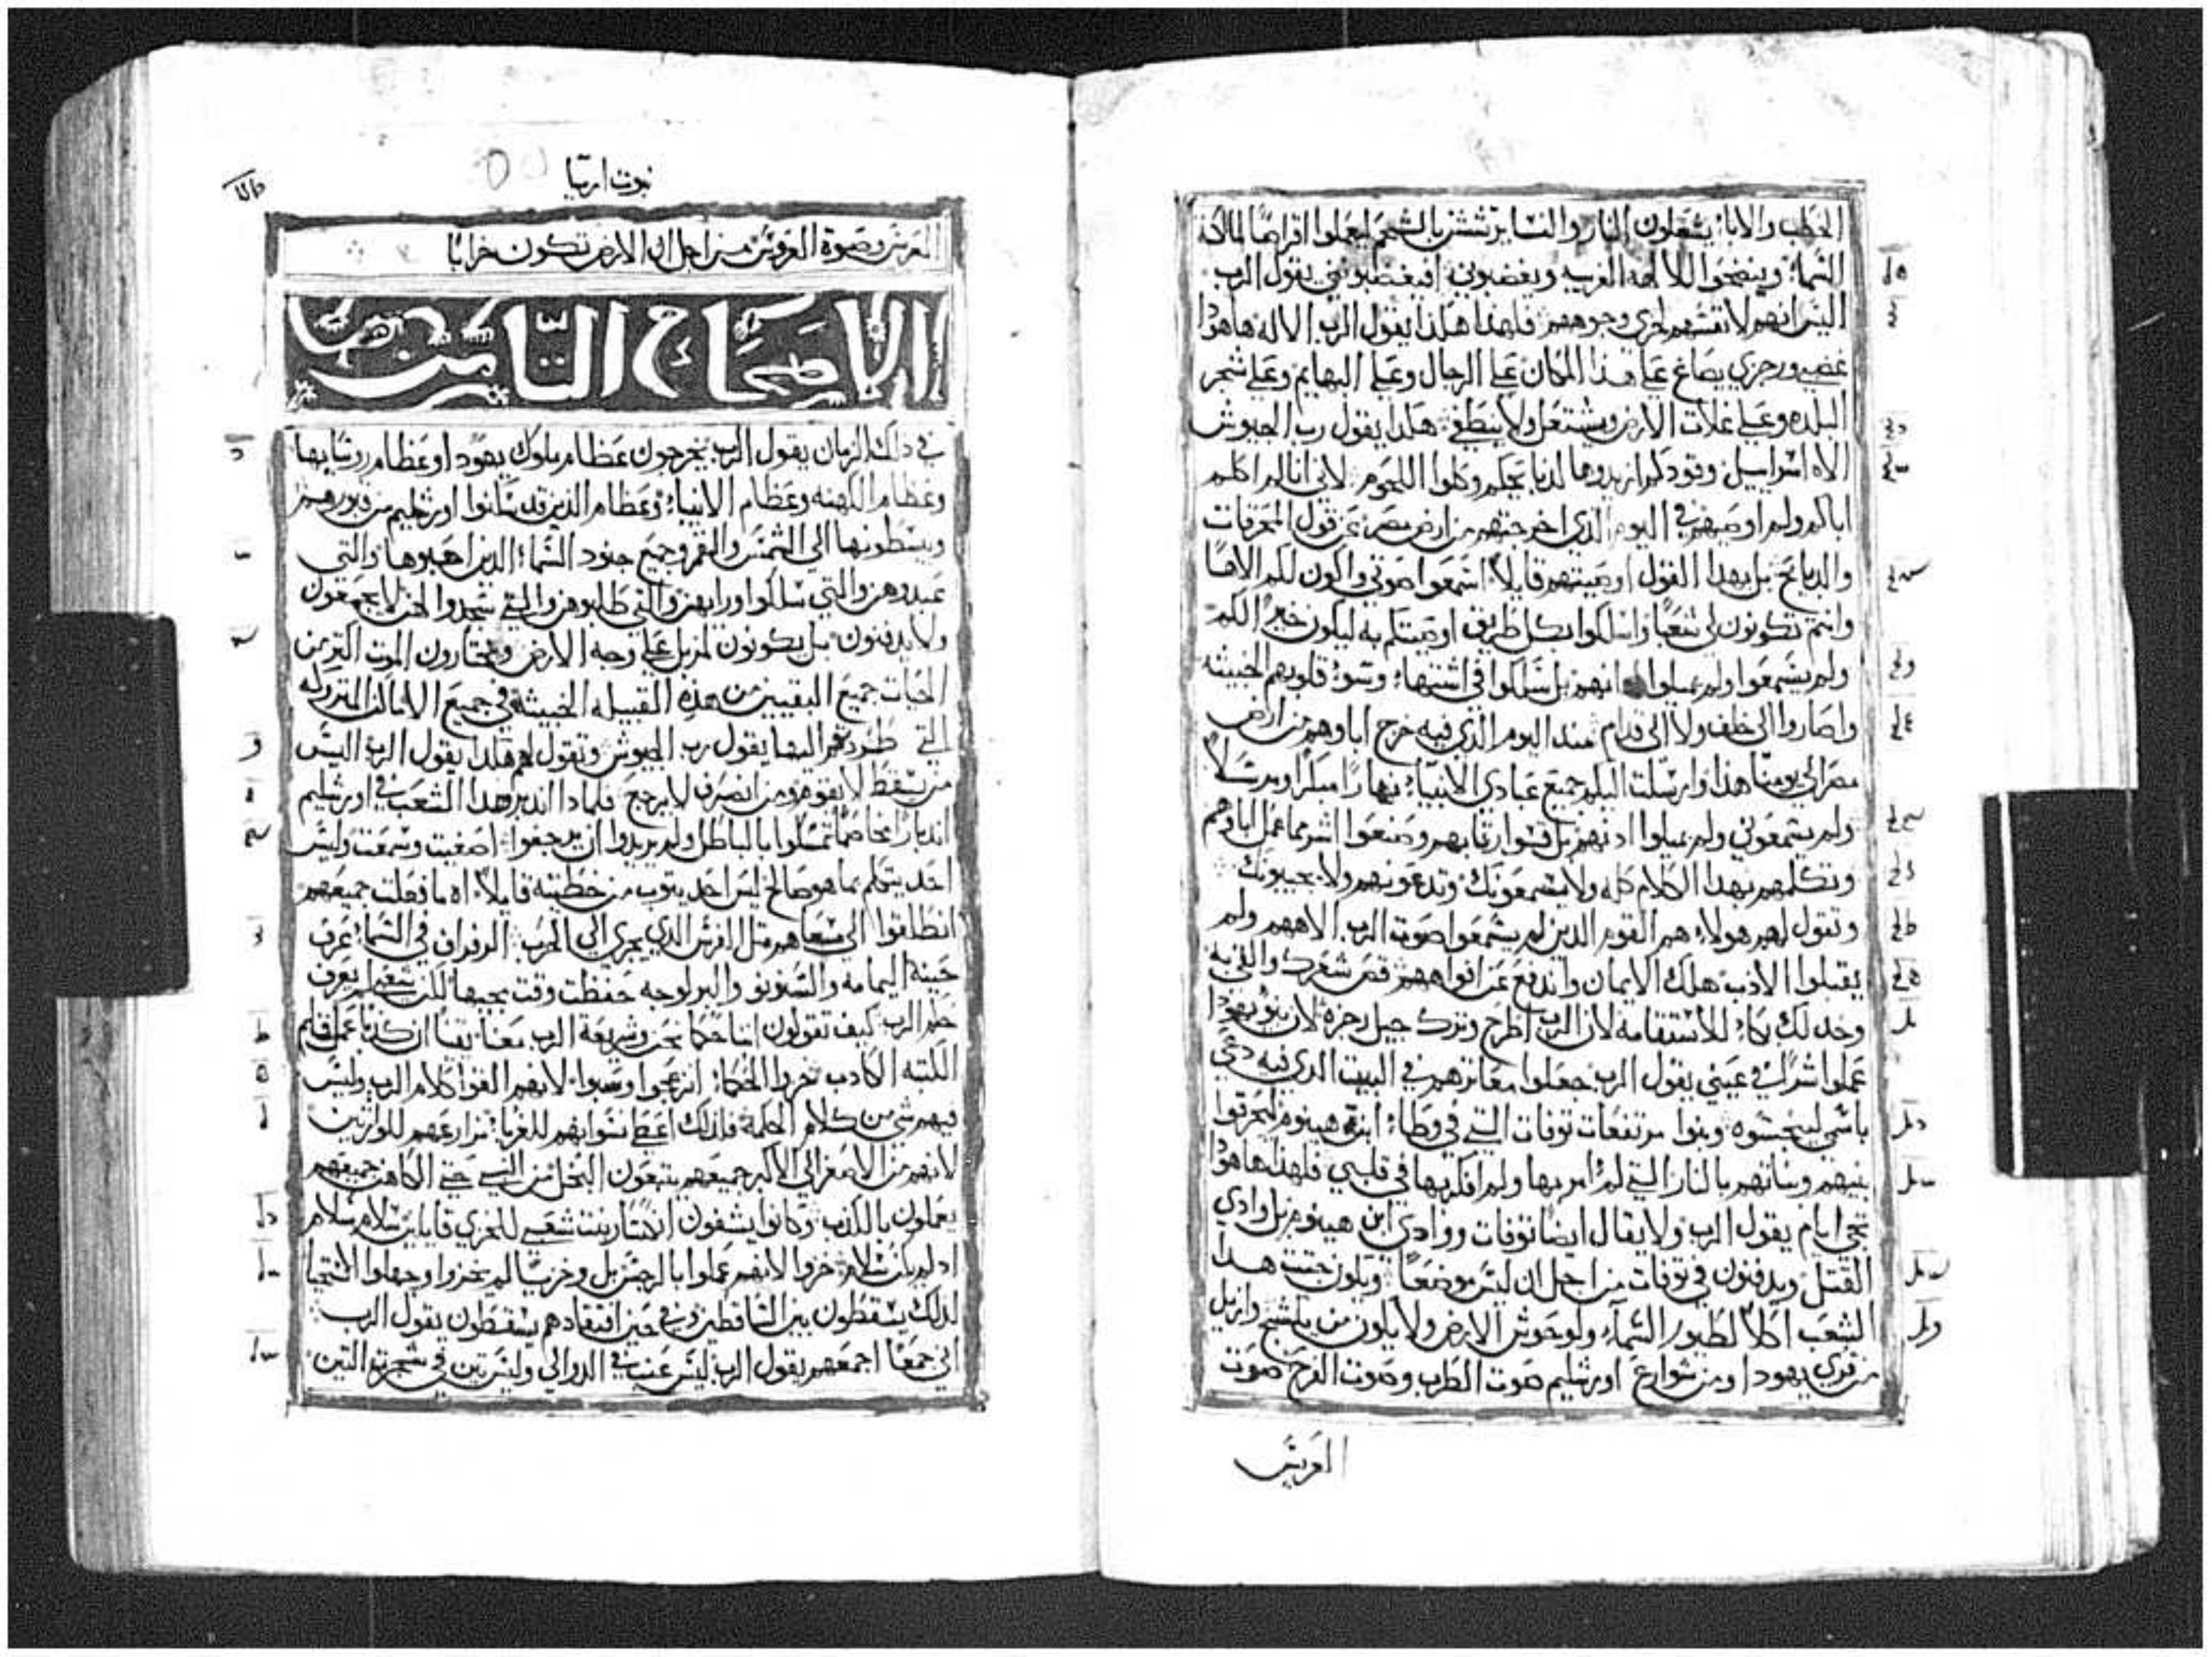 الحطب والابا يشعلون النار والنسا يرششن بالشحم ليعملوا اقراصًا لمالكة
السماء وينضحوا للالهه الغريبه ويغضبوني افيغضبوني يقول الرب
اليس انهم لانفسهم لخزي وجوههم فلهذا هكذا يقول الرب الاله هاهوذا
غضبي ورجزي يصاغ على هذا المكان على الرجال وعلى البهايم وعلى شجر
البلده وعلى غلات الارض ويشتعل ولا ينطفي هكذا يقول رب الجيوش
الاه اسراييل وقودكم ازيدوها لدبايحكم وكلوا اللحوم لاني انا لم اكلم
اباكم ولم اوصيهم في اليوم الذي اخرجتهم من ارض مصر عن قول المحرقات
والدبايح بل بهدا القول اوصيتهم قايلاً اسمعوا صوتي واكون لكم الاهًا
وانتم تكونون لي شعبًا واسلكوا بكل طريق اوصيتكم به ليكون خيرًا لكم
ولم يسمعوا ولم يميلوا ادانهم بل سلكوا في اشتهاء وسوء قلوبهم الخبيثه
وصاروا الى خلف ولا الى قدام مند اليوم الذي فيه خرج اباوهم من ارض
مصر الى يومنا هذا وارسلت اليكم جميع عبادي الانبياء نهارًا مبكرًا ومرسلاً
ولم يسمعوني ولم يميلوا ادنهم بل قسوا رقابهم وصنعوا اشر مما عمل اباوهم
وتكلمهم بهدا الكلام كله ولا يسمعونك وتدعوهم ولا يجيبونك
وتقول لهم هولاء هم القوم الدين لم يسمعوا صوت الرب الاههم ولم
يقبلوا الادب هلك الايمان واندفع عن افواههم قص شعرك والقي به
وخد لك بكاء للاستقامه لان الرب اطرح وترك جيل رجزه لان بنو يهودا
عملوا شرًا في عيني يقول الرب جعلوا معاثرهم في البيت الدي فيه دعي
باسمي لينجسوه وبنوا مرتفعات توفات التي في وطاء ابن هينوم ليحرقوا
بنيهم وبناتهم بالنار التي لم امر بها ولم افكر بها في قلبي فلهذا هاهوذا
تجي ايام يقول الرب ولا يقال ايضًا توفات ووادي ابن هينوم بل وادي
القتل ويدفنون في توفات من اجل ان ليس موضعًا وتكون جتت هدا
الشعب اكلاً لطيور السماء ولوحوش الارض ولا يكون من يكشح وازيل
من قري يهودا ومن شوارع اورشليم صوت الطرب وصوت الفرح صوت
العريس
نبوت ارميا
العريس وصوة العروس من اجل ان الارض تكون خرابًا
الاصحاح التامن
في دلك الزمان يقول الرب يخرجون عظام ملوك يهودا وعظام روسايها
وعظام الكهنه وعظام الانبياء وعظام الذين قد سكنوا اورشليم من قبورهم
ويبسطونها الى الشمس والقمر وجميع جنود السماء الدين احبوها والتي
عبدوهن والتي سلكوا وراهن والتي طلبوهن والتي سجدوا لهن لا يجمعون
ولا يدفنون بل يكونون لمزبل على وجه الارض ويختارون الموت اكتر من
الحيات جميع البقيين من هذه القبيله الخبيثة في جميع الاماكن المتروكه
التي طردتهم اليها يقول رب الجيوش وتقول لهم هكدا يقول الرب اليس
من يسقط لا يقوم ومن انصرف لا يرجع فلمادا اندبر هدا الشعب في اورشليم
اندبارًا مخاصمًا تمسكوا بالباطل ولم يريدوا ان يرجعوا اصغيت وسمعت وليس
احد يتكلم بما هو صالح ليس احد يتوب من خطيته قايلاً اه ما فعلت جميعهم
انطلقوا الى مسعاهم متل الفرس الدي يجري الى الحرب الرفراف في السماء عرف
حينه اليمامه والسنونو والبرلوجه حفظت وقت مجيها لكن شعبي لم يعرف
حكم الرب كيف تقولون اننا حكما نحن وشريعة الرب معنا يقنًا ان كدبًا عمل قلم
الكتبه الكادب خزوا الحكماء انزعجوا وسبوا لانهم القوا كلام الرب وليس
فيهم شي من كلام الحكمة فلدلك اعطي نسوانهم للغرباء مزارعهم للوارتين
لانهم من الاصغر الى الاكبر جميعهم يتبعون البخل من النبي حتى الكاهن جميعهم
يعملون بالكدب وكانوا يشفون انكسار بنت شعبي للخزي قايلين سلام سلام
اد لم يكن سلام خزوا لانهم عملوا بالرجس بل وخزيًا لم يخزوا وجهلوا الاستحيا
لدلك يسقطون بين الساقطين وفي حين افتقادهم يسقطون يقول الرب
اني جمعًا اجمعهم يقول الرب ليس عنب في الدوالي وليس تين في شجرة التين